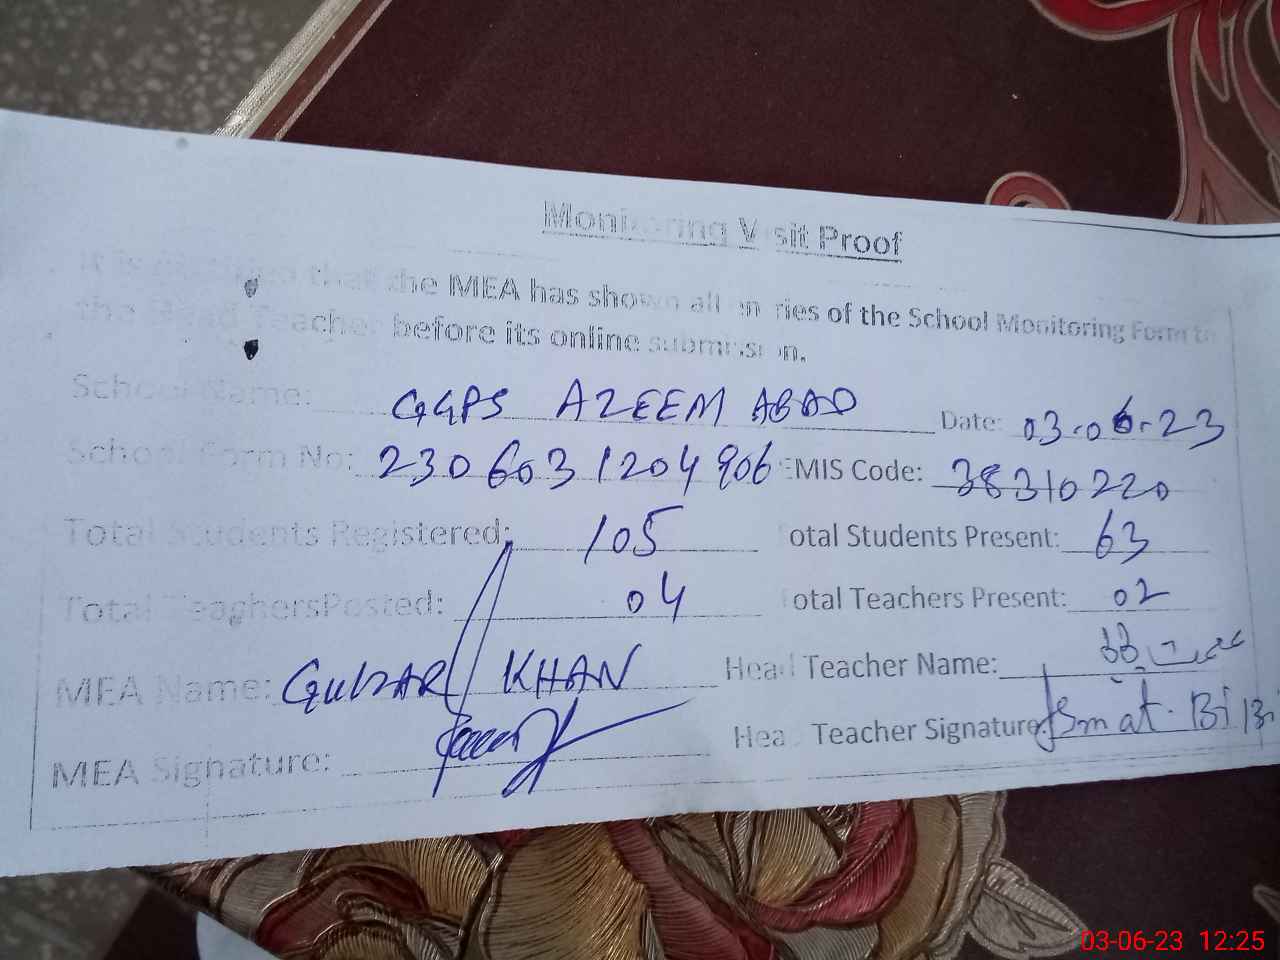 Monitoring Visit Proof
It is certified that the MEA has shown all entries of the School Monitoring Form to
the Head Teacher before its online submission.
School Name: GGPS AZEEM ABAD Date: 03.06.23
School Form No: 2306031204906 EMIS Code: 38310220
Total Students Registered: 105 Total Students Present: 63
Total TeaghersPosted: 04 Total Teachers Present: 02
MEA Name: GULZAR KHAN Head Teacher Name: عصمت بی بی
MEA Signature: Head Teacher Signature: Ismat Bi Bi
03-06-23 12:25